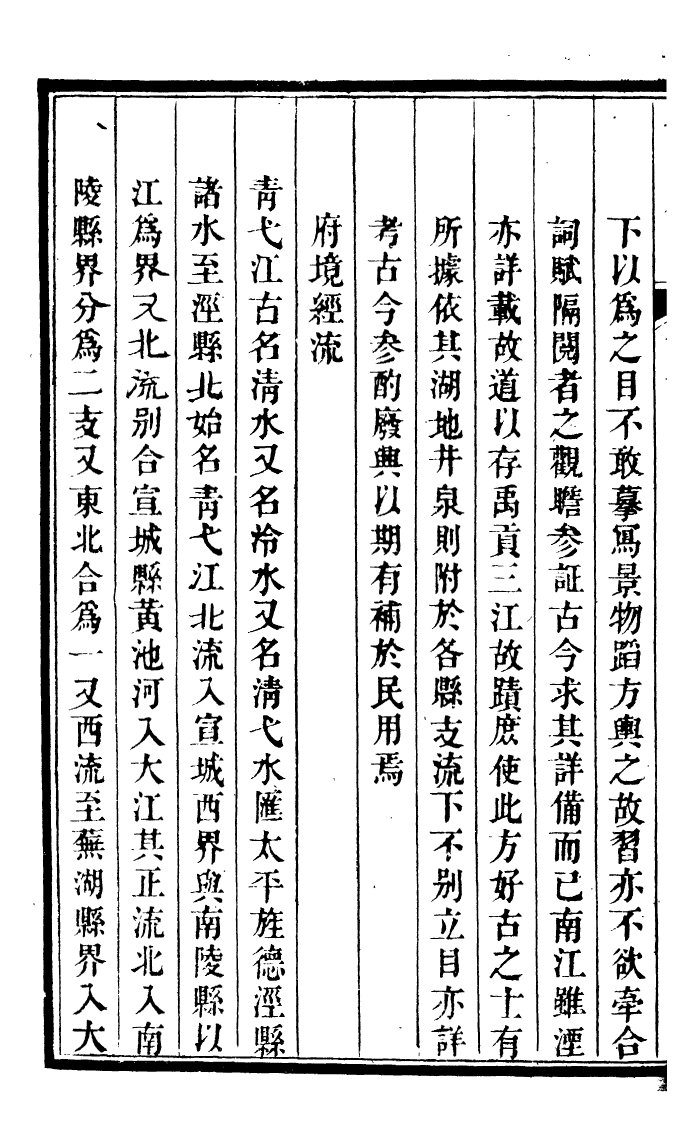 下以爲之目不敢摹寫景物蹈方輿之故習亦不欲牽合
詞賦隔閱者之觀瞻參証古今求其詳備而已南江雖湮
亦詳載故道以存禹貢三江故蹟庶使此方好古之士有
所據依其湖地井泉則附於各縣支流下不別立目亦詳
考古今參酌廢興以期有補於民用焉
府境經流
青弋江古名清水又名冷水又名清弋水匯太平旌德涇縣
諸水至涇縣北始名青弋江北流入宣城西界與南陵縣以
江爲界又北流別合宣城縣黃池河入大江其正流北入南
陵縣界分爲二支又東北合爲一又西流至蕪湖縣界入大